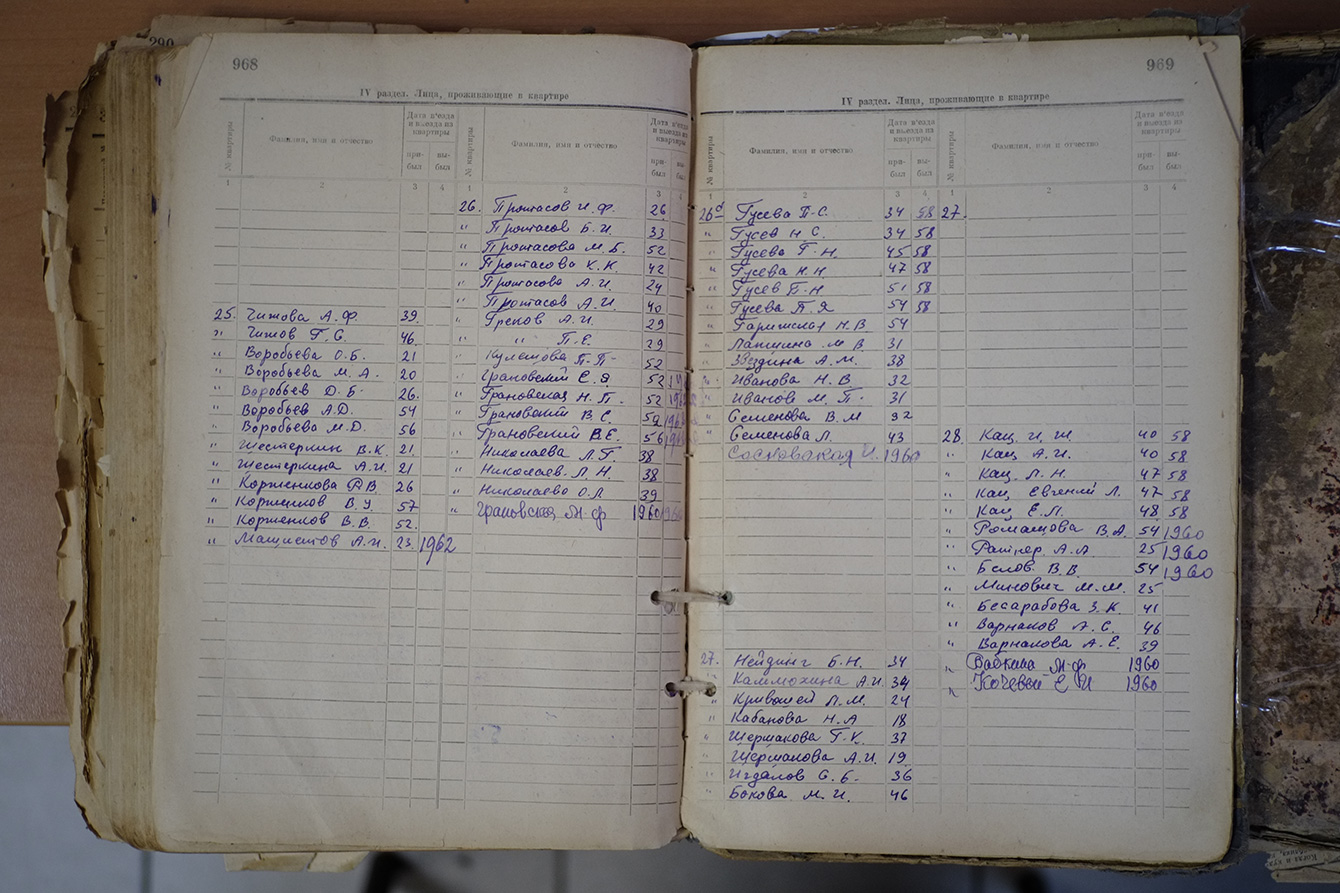 968
IV раздел. Лица, проживающие в квартире
№ квартиры
Фамилия, имя и отчество
Дата в'езда и выезда из квартиры
при-был
вы-был
1 2 3 4
25. Чижова А.Ф. 39.
" Чижов Г.С. 46.
" Воробьева О.Б. 21
" Воробьева М.А. 20
" Воробьев Д.Б. 26.
" Воробьев А.Д. 54
" Воробьева М.Д. 56
" Шестеркин В.К. 21
" Шестеркина А.И. 21
" Корженкова В. 26
" Корженков В.У. 57
" Корженков В.В. 52.
" А.И. 23. 1962
№ квартиры
Фамилия, имя и отчество
Дата в'езда и выезда из квартиры
при-был
вы-был
1 2 3 4
26. Протасов И.Ф. 26
" Протасов Б.И 33
" Протасова М.Б. 52
" Протасова К.К. 42
" Протасова А.И. 24
" Протасов А.И. 40
" Греков А.И. 29
" " П.Е. 29
" Кулешова П.П. 52
" Грановский Е.Я 52
" Грановская Н.П. 52
" Грановский В.С.
" Грановский В.Е. 56
" Николаева Л.Г. 38
" Николаев Л.Н. 38
" Николаева О.Л 39
" Грановская М.Ф 1960
969
IV раздел. Лица, проживающие в квартире
№ квартиры
Фамилия, имя и отчество
Дата в'езда и выезда из квартиры
при-был
вы-был
1 2 3 4
26а Гусева П.С. 34 58
" Гусев Н С. 34 58
" Гусева Г.Н. 45 58
" Гусева Н.Н 47 58
" Гусев П.Н 51 58
" Гусева П.Я 54 58
" Парижская Н.В. 54
" Лапшина М В 31
" Звездина А.М. 38
" Иванова Н.В. 32
" Иванов М.П. 31
" Семенова В.М 32
" Семенова Л. 43
1960
27. Нейдинг Б.Н. 34
" А.И. 34
" Кривошей Л.М. 24
" Кабанова Н.А 18
" Шермакова Г.К. 37
" Шермакова А.И. 19
" Игдалов С.Б. 36
" Бокова М.И. 46
№ квартиры
Фамилия, имя и отчество
Дата в'езда и выезда из квартиры
при-был
вы-был
1 2 3 4
27.
28. Кац И.Ш. 40 58
" Кац А.И. 40 58
" Кац Л.Н. 47 58
" Кац Евгений Л. 47 58
" Кац Е.Л. 48 58
" Ромащова В.А. 54 1960
" Ратнер А.А 25 1960
" Белов В.В. 54 1960
" Минович М.М. 25
" Бесарабова З.К. 41
" Варнаков А.С. 46
" Варнакова А.Е. 39
" М.Ф. 1960
" Кочевый Е И 1960